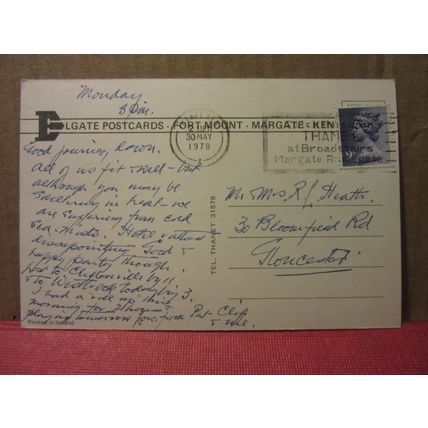 Monday
8 pm.
ELGATE POSTCARDS · FORT MOUNT · MARGATE · KENT
30 MAY
1978
THANET
at Broadstairs
Margate Ramsgate
Good journey down.
All of us fit & well – but
although you may be
sweltering in heat we
are suffering from cold
Sea mists. Hotel
disappointing. Good &
happy party though.
lost to Cliftonville by 11
& To Westbrook today by 3.
I had a roll up this
morning for 2 hours
playing tomorrow
Pat Cliff
Mr. Mrs. R. J. Heath.
30 Bloomfield Rd
Gloucester
TEL. THANET 31579
Printed in Ireland